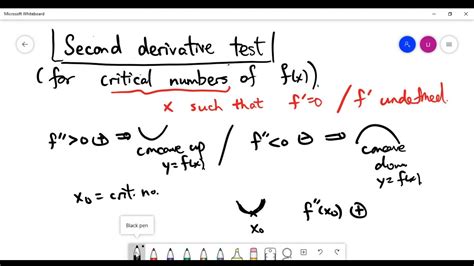 Microsoft Whiteboard
Second derivative test
(for critical numbers of f(x)).
x such that f'=0 / f' undefined.
f''>0 ⊕ ⇒ concave up y=f(x) / f''<0 ⊖ ⇒ concave down y=f(x)
x₀ = crit. no.
x₀ f''(x₀) ⊕
Black pen